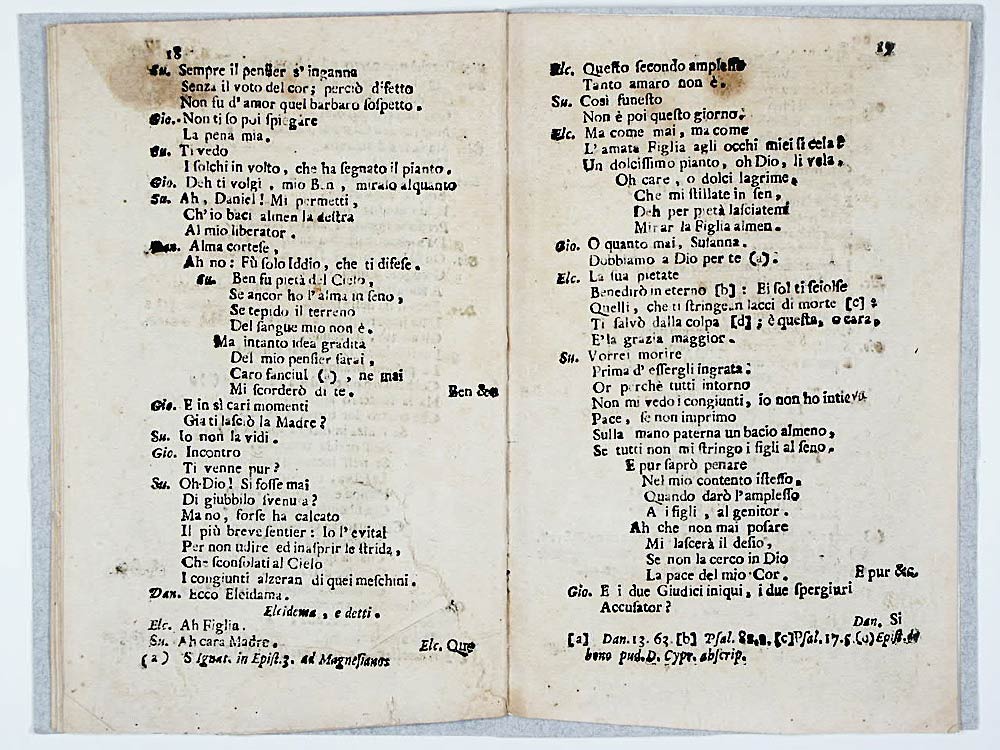 18
Su. Sempre il pensier s'inganna
Senza il voto del cor; perciò difetto
Non fu d'amor quel barbaro sospetto.
Gio. Non ti so poi spiegare
La pena mia.
Su. Ti vedo
I solchi in volto, che ha segnato il pianto.
Gio. Deh ti volgi, mio Ben, miralo alquanto
Su. Ah, Daniel! Mi permetti,
Ch'io baci almen la destra
Al mio liberator.
Dan. Alma cortese,
Ah no: Fù solo Iddio, che ti difese.
Su. Ben fu pietà del Cielo,
Se ancor ho l'alma in seno,
Se tepido il terreno
Del sangue mio non è.
Ma intanto idea gradita
Del mio pensier sarai,
Caro fanciul (a), ne mai
Mi scorderò di te. Ben &c.
Gio. E in sì cari momenti
Gia ti lasciò la Madre?
Su. Io non la vidi.
Gio. Incontro
Ti venne pur?
Su. Oh Dio! Si fosse mai
Di giubbilo svenuta?
Ma no, forse ha calcato
Il più breve sentier: Io l'evitai
Per non udire ed inasprir le strida,
Che sconsolati al Cielo
I congiunti alzeran di quei meschini.
Dan. Ecco Elcidama.
Elcidema, e detti.
Elc. Ah Figlia.
Su. Ah cara Madre. Elc. Que
(a) S Ignat. in Epist. 3. ad Magnesianos
19
Elc. Questo secondo amplesso
Tanto amaro non è.
Su. Così funesto
Non è poi questo giorno.
Elc. Ma come mai, ma come
L'amata Figlia agli occhi miei si cela?
Un dolcissimo pianto, oh Dio, li vela.
Oh care, o dolci lagrime,
Che mi stillate in sen,
Deh per pietà lasciatemi
Mirar la Figlia almen.
Gio. O quanto mai, Susanna.
Dobbiamo a Dio per te (a).
Elc. La sua pietate
Benedirò in eterno [b]: Ei sol ti sciolse
Quelli, che ti stringean lacci di morte [c];
Ti salvò dalla colpa [d]; è questa, o cara,
E'la grazia maggior.
Su. Vorrei morire
Prima d'essergli ingrata:
Or perchè tutti intorno
Non mi vedo i congiunti, io non ho intiera
Pace, se non imprimo
Sulla mano paterna un bacio almeno,
Se tutti non mi stringo i figli al seno.
E pur saprò penare
Nel mio contento istesso,
Quando darò l'amplesso
A i figli, al genitor.
Ah che non mai posare
Mi lascerà il desio,
Se non la cerco in Dio
La pace del mio Cor. E pur &c.
Gio. E i due Giudici iniqui, i due spergiuri
Accusator?
Dan. Si
[a] Dan. 13. 63. [b] Psal. [c] Psal. 17. 5. Epist. de
bono pud. D. Cypr. abscrip.